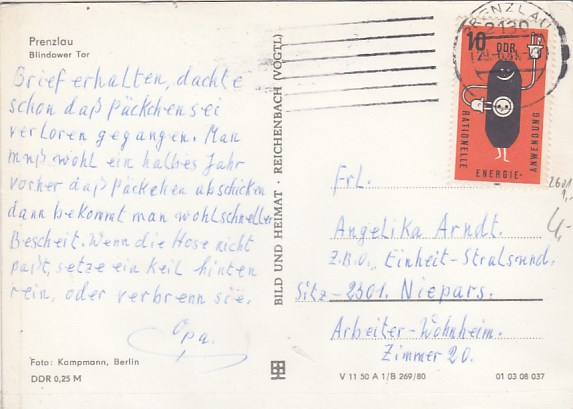 Prenzlau
Blindower Tor
Brief erhalten, dachte
schon daß Päckchen sei
verloren gegangen. Man
muß wohl ein halbes Jahr
vorher daß Päckchen abschicken
dann bekommt man wohl schneller
Bescheit. Wenn die Hose nicht
paßt, setze ein Keil hinten
rein, oder verbrenn sie.
Opa.
Foto: Kampmann, Berlin
DDR 0,25 M
BILD UND HEIMAT · REICHENBACH (VOGTL)
PRENZLAU
2130
10 DDR
RATIONELLE
ENERGIE-
ANWENDUNG
2601
1,-
4,-
Frl.
Angelika Arndt.
Z.B.O. Einheit-Stralsund.
Sitz-2301. Niepars.
Arbeiter-Wohnheim.
Zimmer 20.
V 11 50 A 1/B 269/80
01 03 08 037